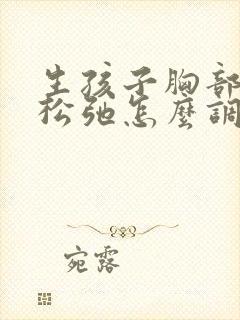 生孩子胸部
松弛怎麼調
宛露